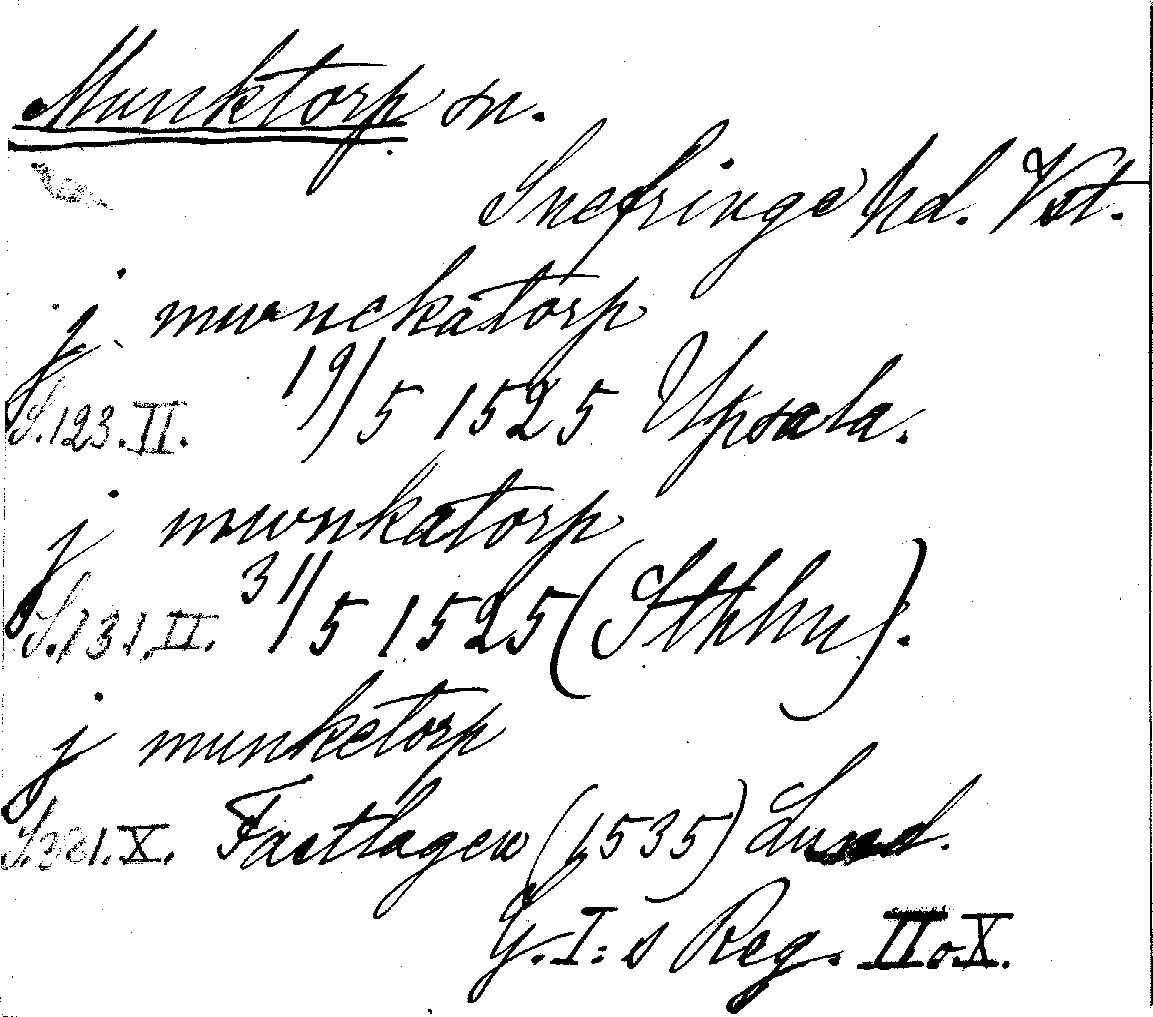 Munktorp sn.
Snefringe hd. Vst.
j munckatorp
S. 123. II. 19/5 1525 Upsala.
j munkatorp
S. 131, II. 31/5 1525 (Sthlm).
j munketorp
S. 381. X. Fastlagen (1535) Lund.
G. I:s Reg. II o. X.